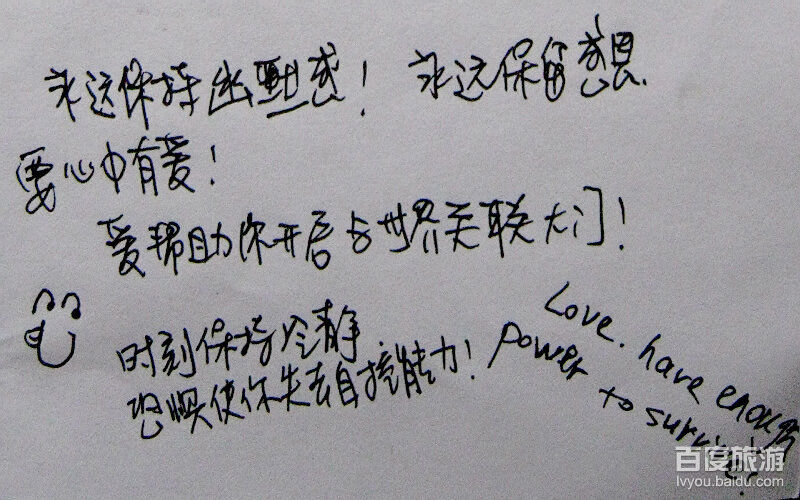 永远保持幽默感！ 永远保留感恩
要心中有爱！
爱帮助你开启与世界关联大门！
时刻保持冷静
恐惧使你失去自控能力！
Love. have enough
power to survive!
百度旅游
lvyou.baidu.com